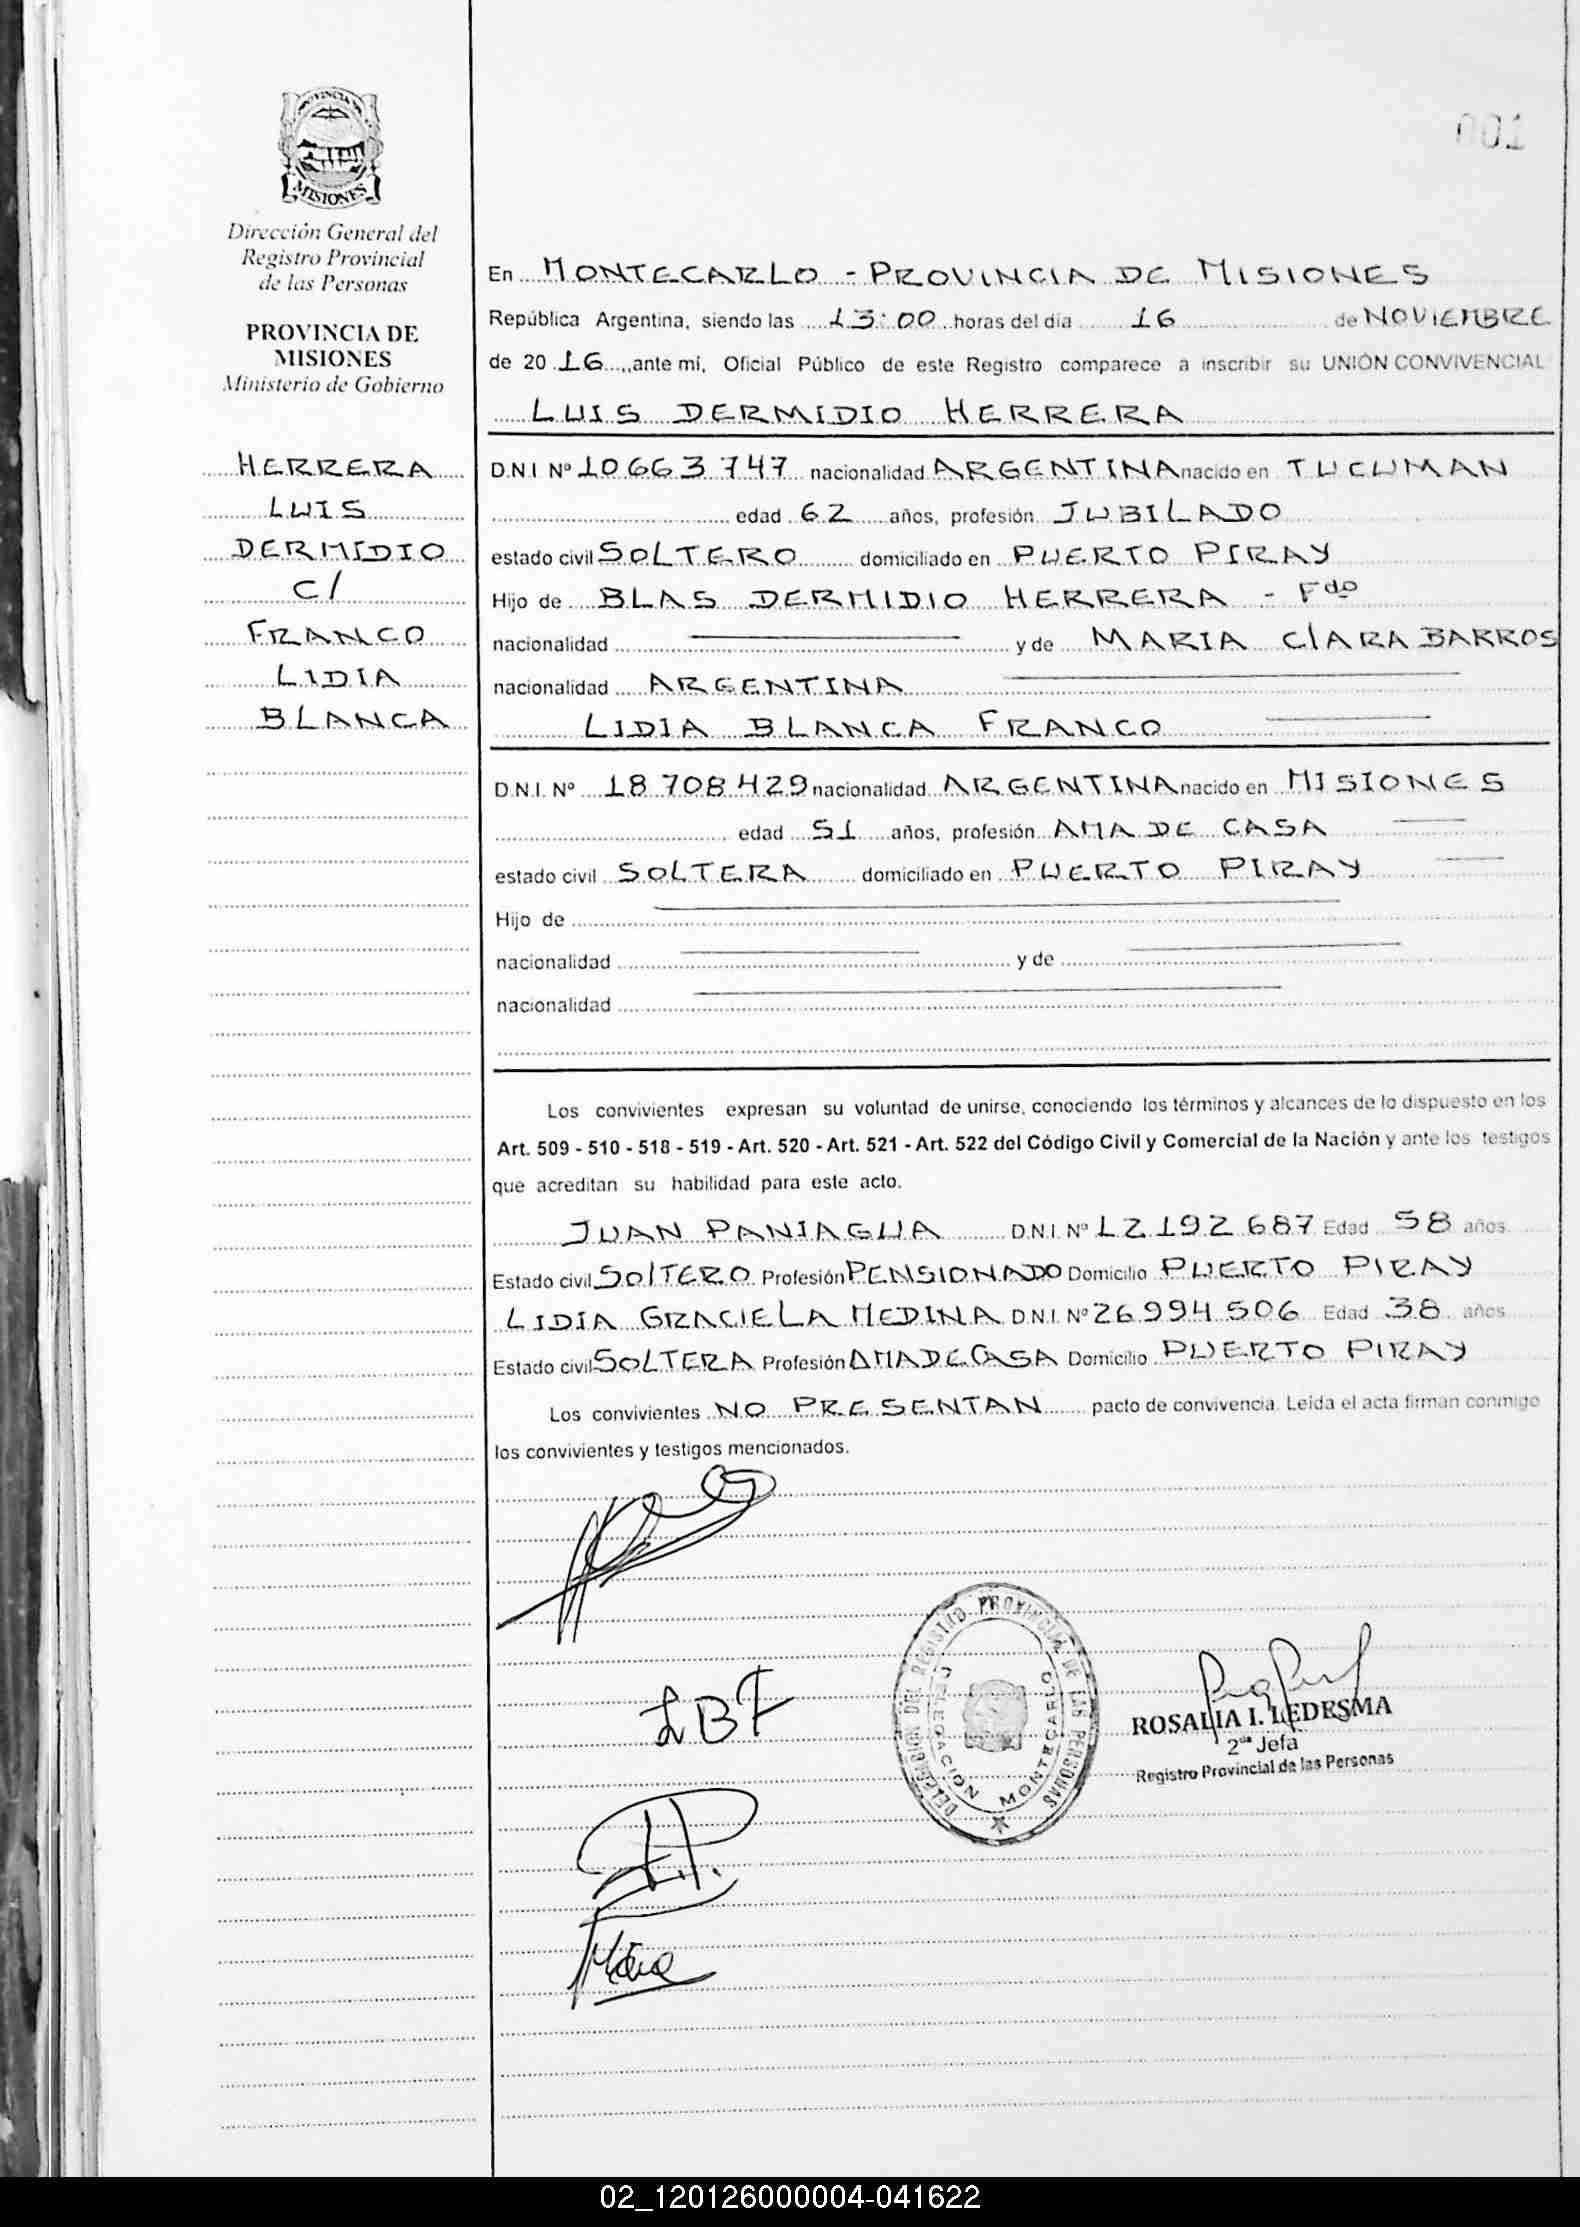 001
PROVINCIA DE
MISIONES
Dirección General del
Registro Provincial
de las Personas
PROVINCIA DE
MISIONES
Ministerio de Gobierno
HERRERA
LUIS
DERMIDIO
C/
FRANCO
LIDIA
BLANCA
En MONTECARLO - PROVINCIA DE MISIONES
República Argentina, siendo las 13:00 horas del día 16 de NOVIEMBRE
de 20 16, ante mí, Oficial Público de este Registro comparece a inscribir su UNIÓN CONVIVENCIAL
LUIS DERMIDIO HERRERA
D.N.I. Nº 10 663 747 nacionalidad ARGENTINA nacido en TUCUMAN
edad 62 años, profesión JUBILADO
estado civil SOLTERO domiciliado en PUERTO PIRAY
Hijo de BLAS DERMIDIO HERRERA - Fdo
nacionalidad y de MARIA ClARA BARROS
nacionalidad ARGENTINA
LIDIA BLANCA FRANCO
D.N.I. Nº 18 708 429 nacionalidad ARGENTINA nacido en MISIONES
edad 51 años, profesión AMA DE CASA
estado civil SOLTERA domiciliado en PUERTO PIRAY
Hijo de
nacionalidad y de
nacionalidad
Los convivientes expresan su voluntad de unirse, conociendo los términos y alcances de lo dispuesto en los
Art. 509 - 510 - 518 - 519 - Art. 520 - Art. 521 - Art. 522 del Código Civil y Comercial de la Nación y ante los testigos
que acreditan su habilidad para este acto.
JUAN PANIAGUA D.N.I. Nº 12 192 687 Edad 58 años.
Estado civil SOlTERO Profesión PENSIONADO Domicilio PUERTO PIRAY
LIDIA GRACIELA MEDINA D.N.I. Nº 26 994 506 Edad 38 años
Estado civil SOLTERA Profesión AMA DE CASA Domicilio PUERTO PIRAY
Los convivientes NO PRESENTAN pacto de convivencia. Leída el acta firman conmigo
los convivientes y testigos mencionados.
LBF
DELEGACION DEL REGISTRO PROVINCIAL DE LAS PERSONAS
DELEGACION MONTECARLO
ROSALIA I. LEDESMA
2da Jefa
Registro Provincial de las Personas
02_120126000004-041622